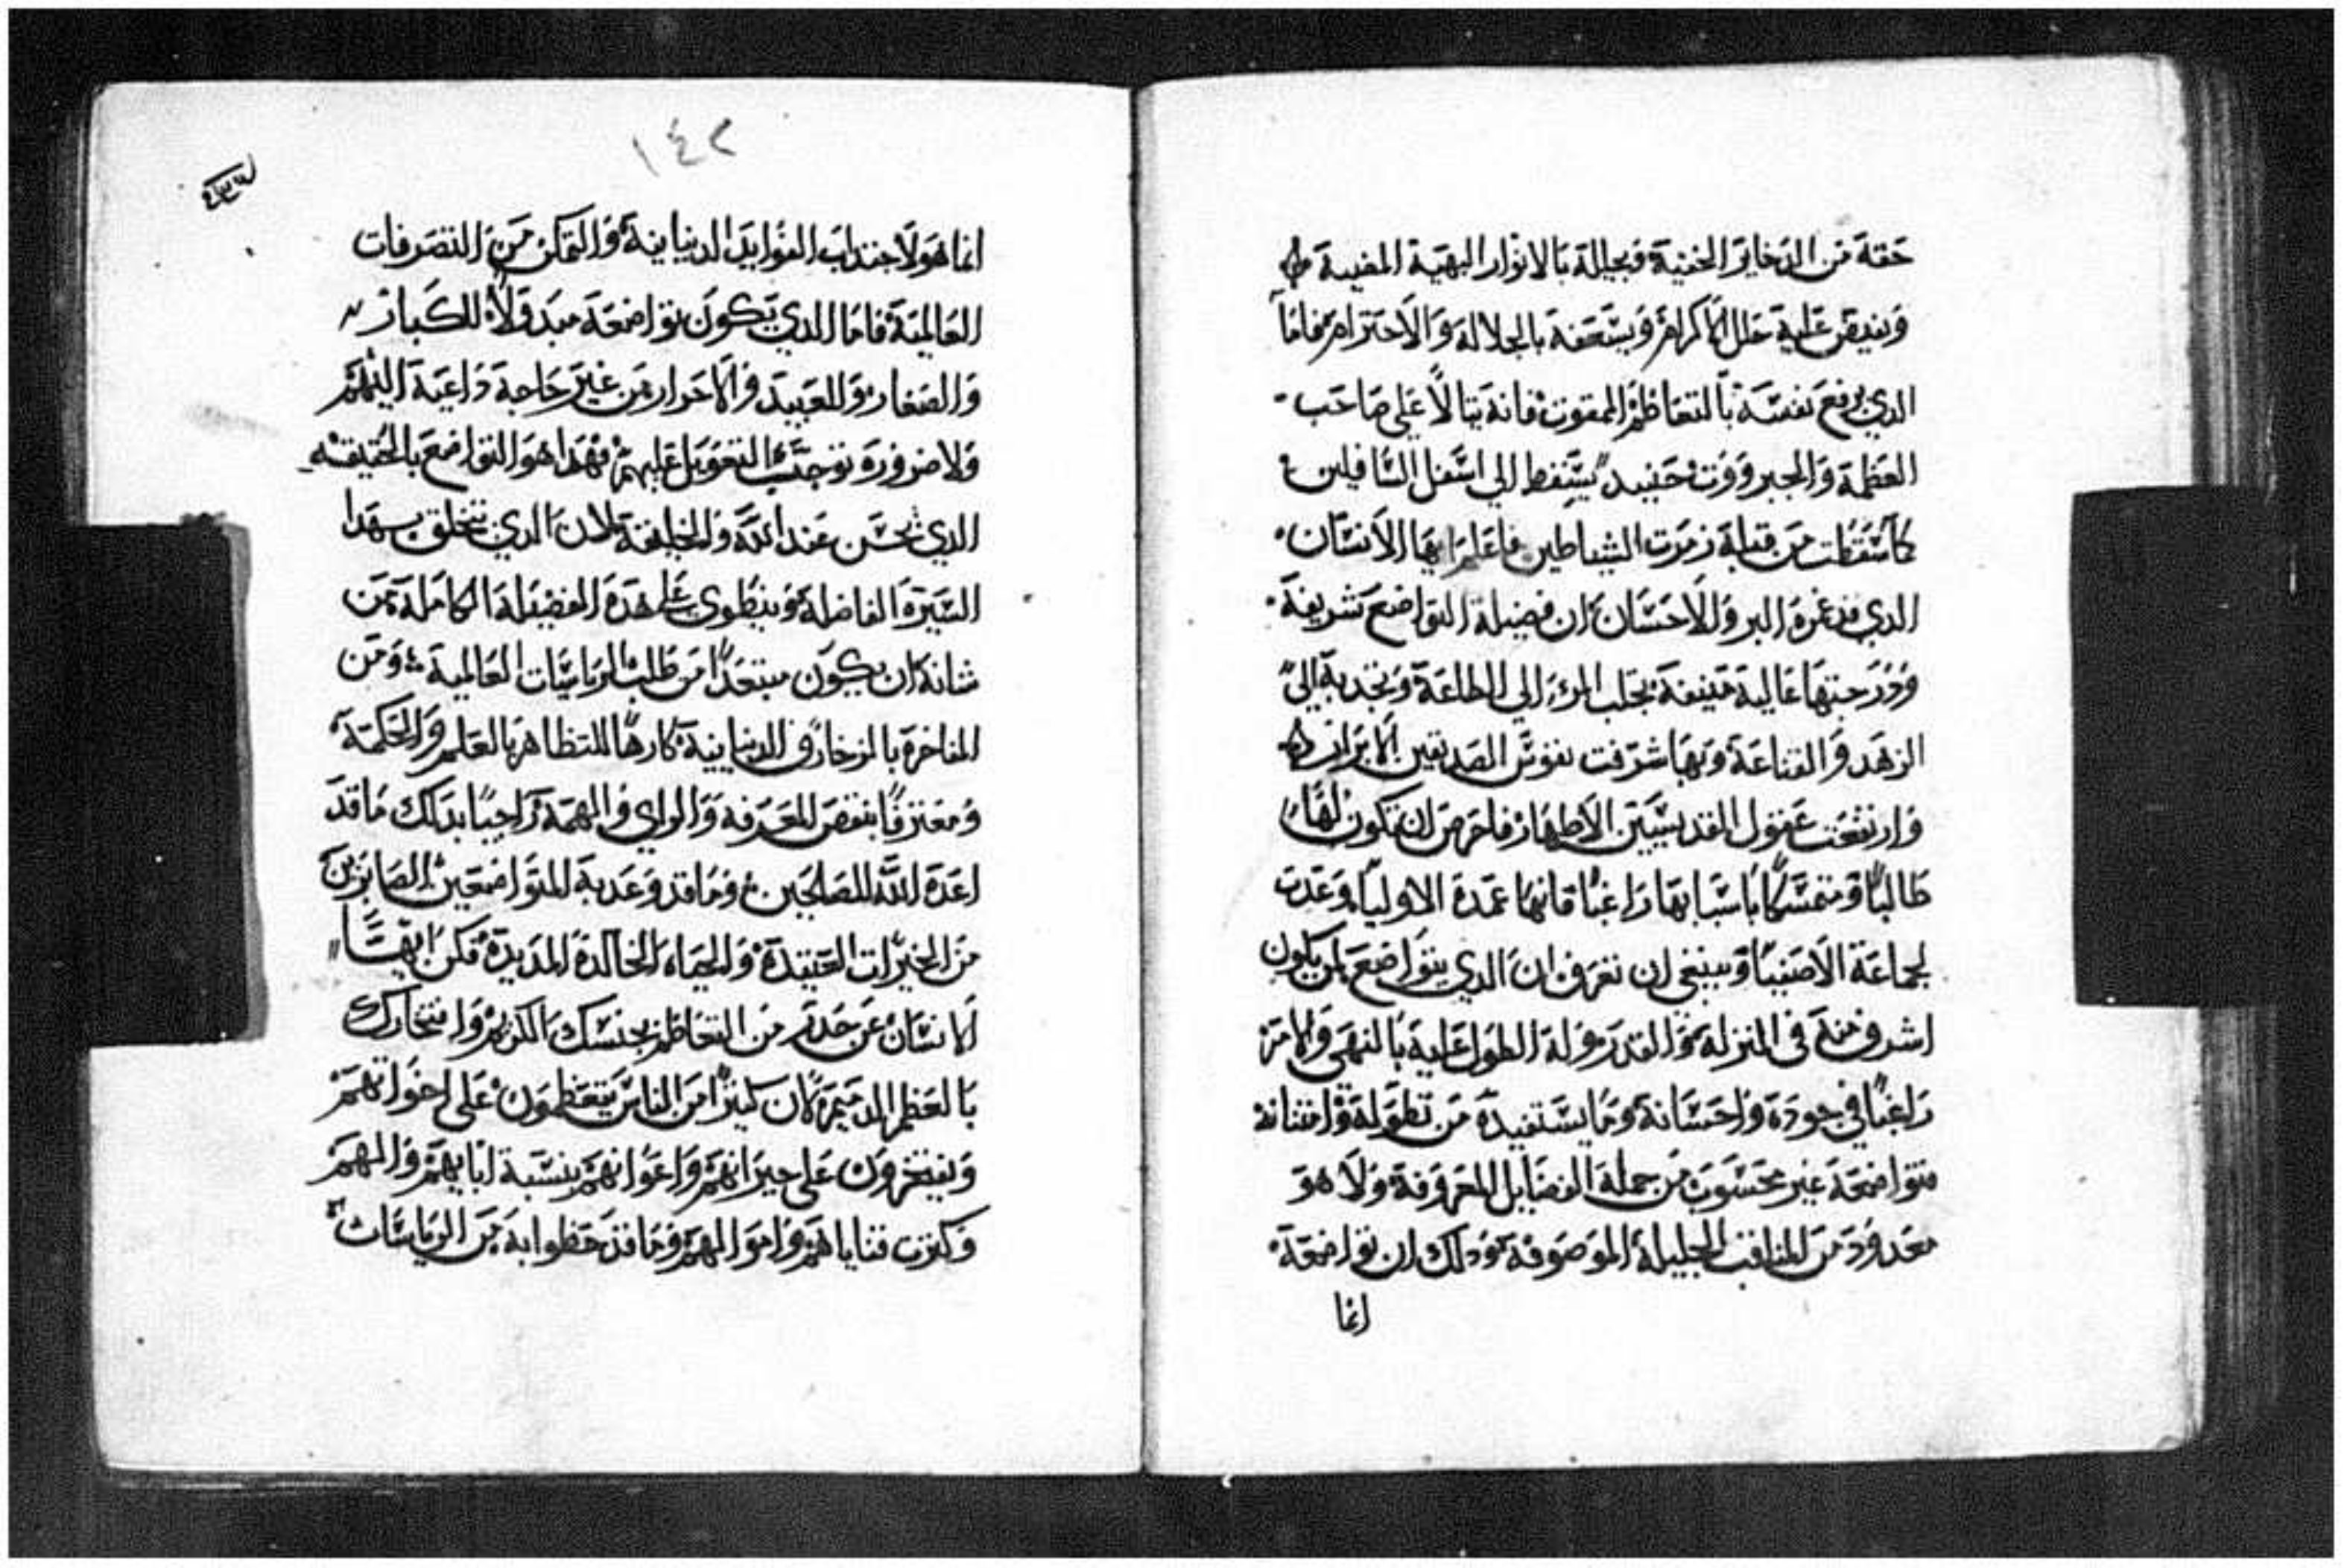 حقه من الدخاير الخفية فيجللة بالانوار البهية المضيية
ويفيض علية حلل الاكرام ويسعفة بالجلالة والاحترام فاما
الدي يرفع نفسة بالتعاظم الممقوت فانة يتالا علي صاحب
العظمة والجبروت حينيد يسقط الي اسفل السافلين
كما سقطت من قبلة زمرت الشياطين فاعلم ايها الانسان
الدي قد غمرة البر والاحسان ان فضيلة التواضع شريفة
ودرجتها عالية منيفة تجلب المرء الي الطاعة وتجدبة الي
الزهد والقناعة وبها شرفت نفوس الصديقين الابرار
وارتفعت عقول القديسين الاطهار فاحرص ان تكون لها
طالبًا ومتمسكًا باسبابها راغبًا فانها عمدة الاوليا وعدت
لجماعة الاصفيا وينبغي ان تعرف ان الدي يتواضع لمن يكون
اشرف منة في المنزلة والقدر ولة الطول علية بالنهي والامر
راغبًا في جودة واحسانة وما يستفيدة من تطولة وامتنانة
فتواضعة غير محسوب من جملة الفضايل المعروفة ولا هو
معدود من المناقب الجليلة الموصوفة ودلك ان تواضعة
انما
١٤٢
انما هو لاجتداب الفوايد الدنيايية والتمكن من التصرفات
العالمية فاما الدي يكون تواضعة مبدولاً للكبار
والصغار وللعبيد والاحرار من غير حاجة داعية اليهم
ولا ضرورة توجب التعويل عليهم فهدا هو التواضع بالحقيقه
الدي يحسن عند الله والخليقة لان الدي يتخلق بهدا
السيرة الفاضلة وينطوي علي هدة الفضيلة الكاملة فمن
شانة ان يكون مبتعدًا من طلب الرياسات العالمية ومن
المفاخرة بالزخارف الدنيايية كارهًا للتظاهر بالعلم والحكمة
ومعترفًا بنقص المعرفه والراي والهمة راجيًا بدلك ما قد
اعدة الله للصالحين وما قد وعد بة المتواضعين الصابرين
من الخيرات العتيدة والحياه الخالدة المديدة فكن ايها
الانسان عن حدر من التعاظم بجنسك الكريم وافتخارك
بالعظم الدميم لان كثيرًا من الناس يتعظمون علي اخواتهم
ويفتخرون علي جيرانهم واعوانهم بنسبة ابايهم والههم
وكثرت قناياهم واموالهم وما قد حظوا بة من الرياسات